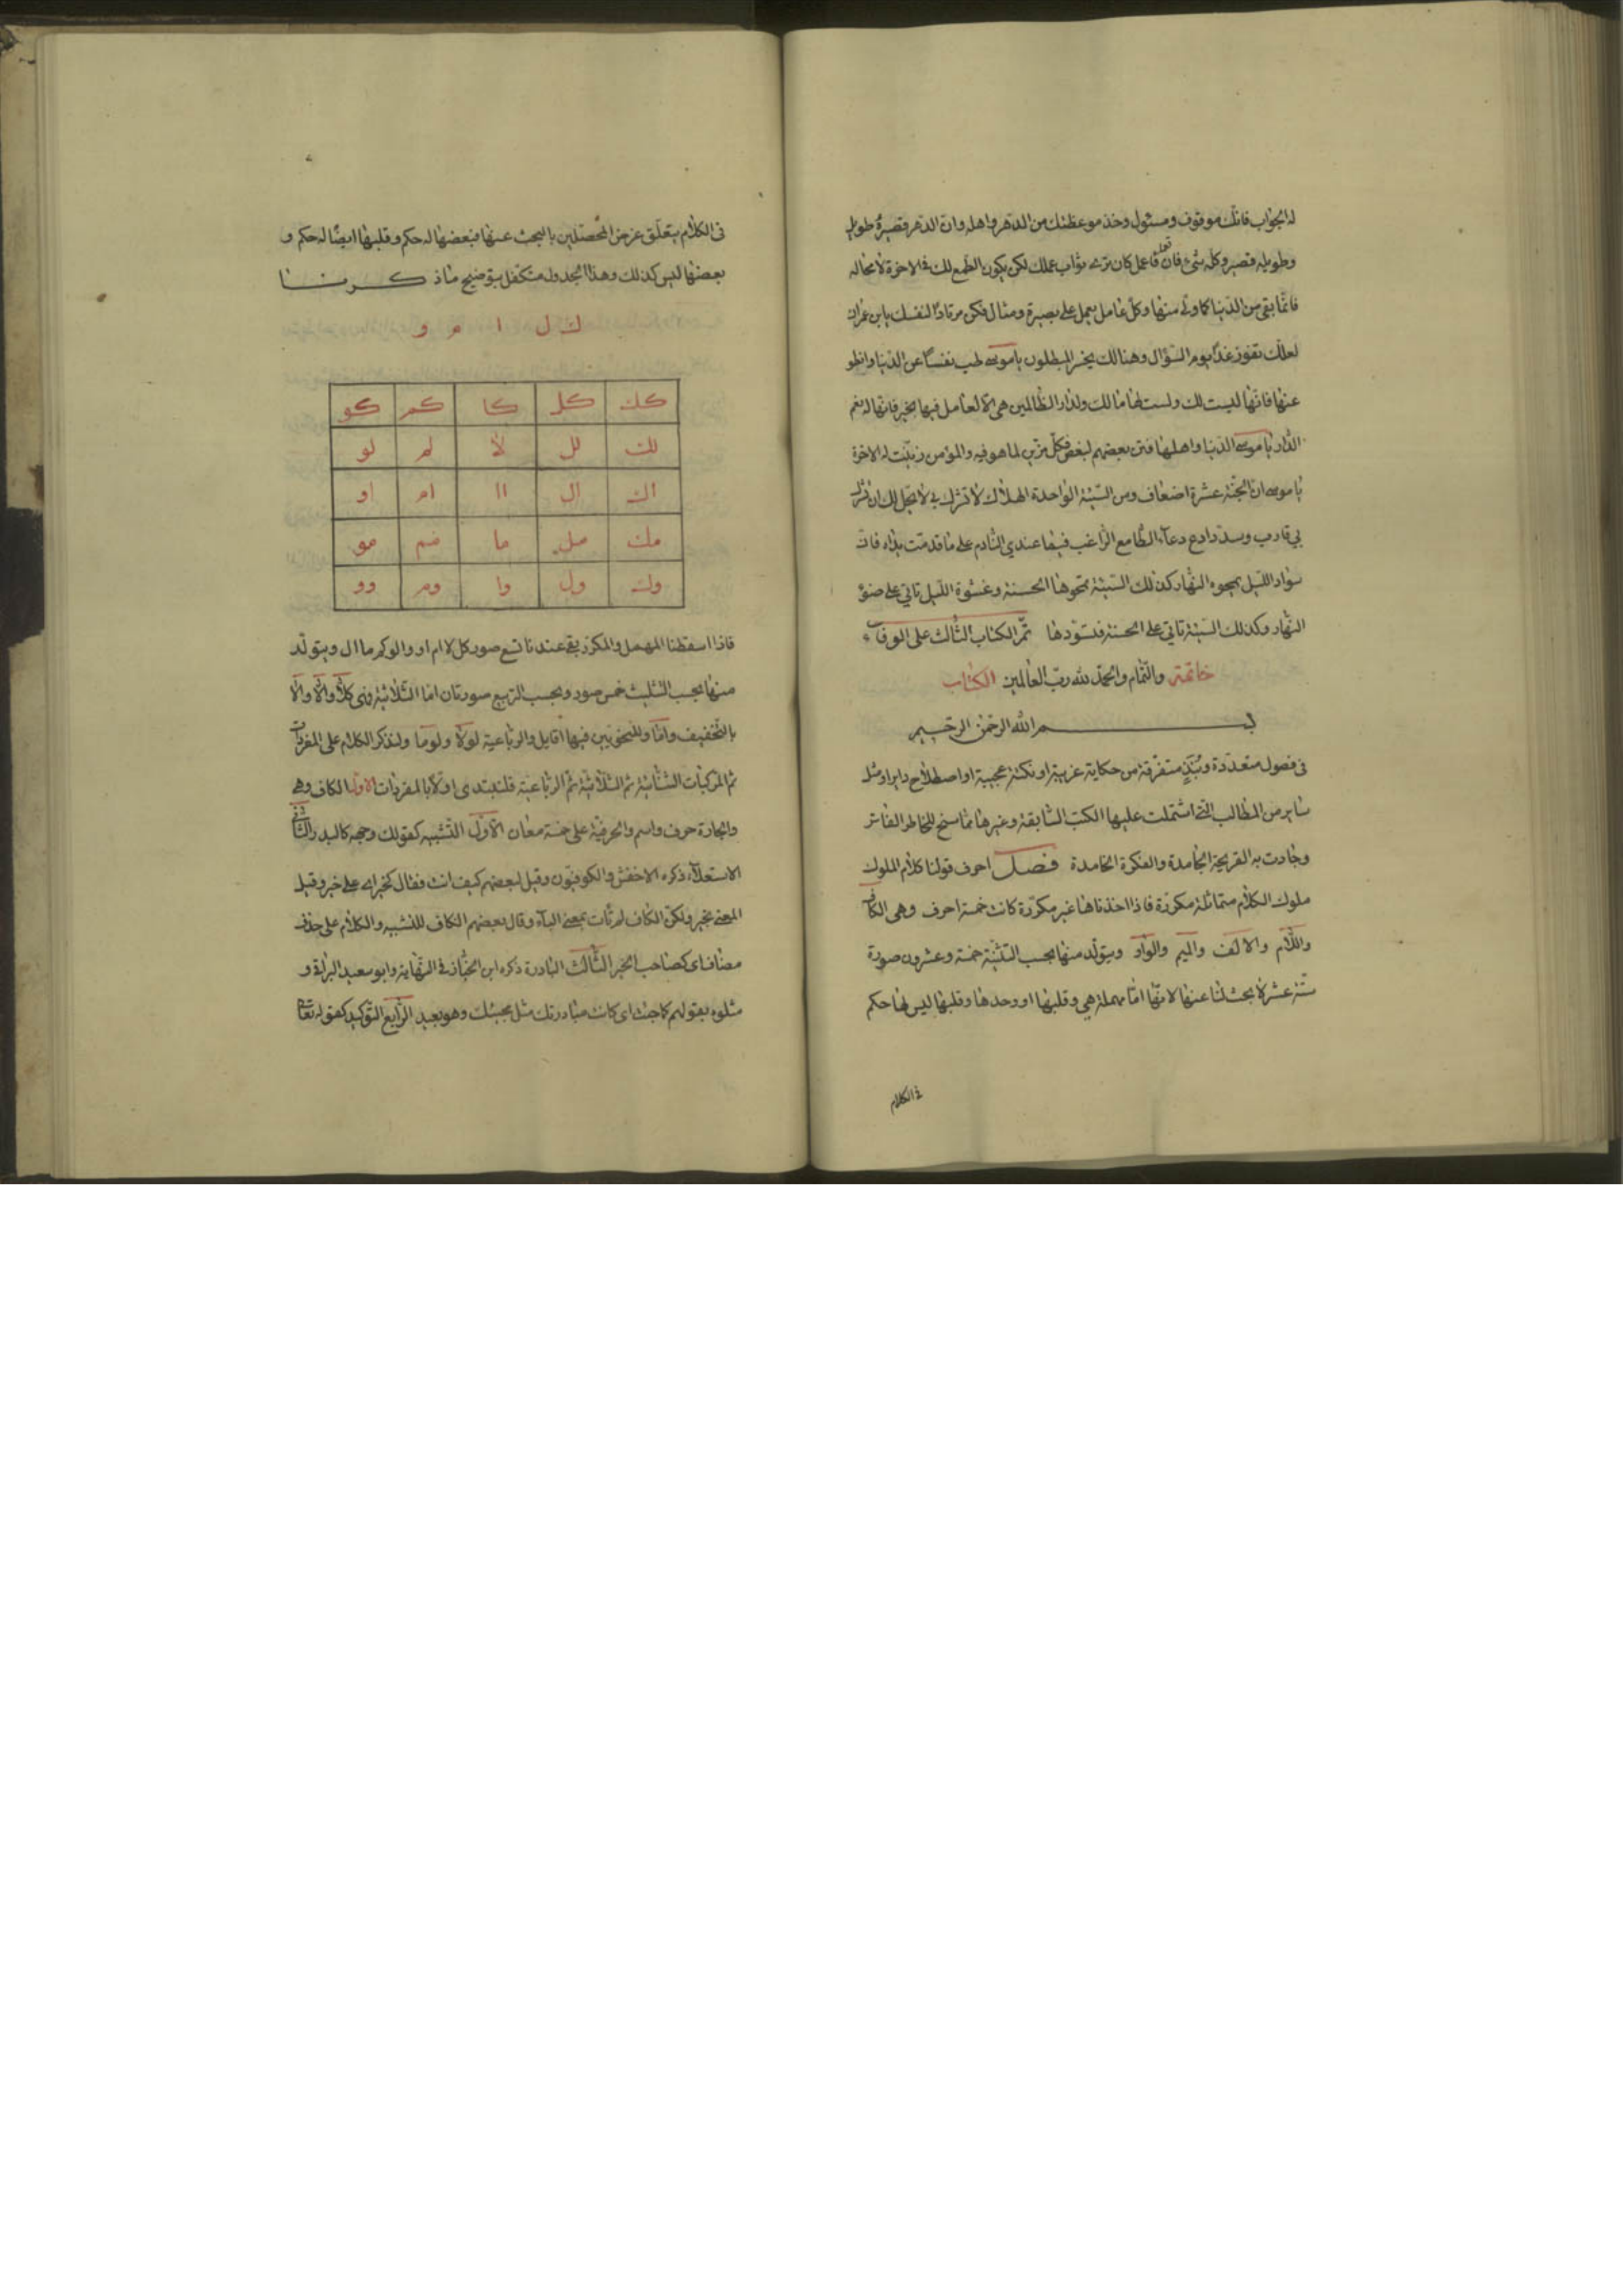 له الجواب فانك موقوف ومسئول وخذ موعظتك من الدهر واهله وان الدهر قصيره طويل
وطويله قصير وكله شئ فان فاعمل كان ترى ثواب عملك لكن يكون الطمع لك فى الاخرة لا محاله
فانما بقى من الدنيا كما ولى منها وكل عامل يعمل على بصيرة ومثال فكن مرتادا لنفسك يا بن عمران
لعلك تفوز غدا يوم السؤال وهنالك يخسر المبطلون يا موسى طب نفسا عن الدنيا وانطو
عنها فانها ليست لك ولست لها ما لك ولدار الظالمين هى الا لعامل فيها بخير فانها له نعم
الدار يا موسى الدنيا واهلها فتن بعضهم لبعض فكل مزين لما هو فيه والمؤمن زينت له الاخرة
يا موسى ان الحسنة عشرة اضعاف ومن السيئة الواحدة الهلاك لا تشرك بى لا يحل لك ان تشرك
بى قارب وسدد ادع دعاء الطامع الراغب فيما عندي النادم على ما قدمت يداه فان
سواد الليل يمحوه النهار كذلك السيئة تمحوها الحسنة وعشوة الليل تاتي على ضوء
النهار وكذلك السيئة تاتي على الحسنة فتسودها تم الكتاب الثالث على الوفاء
خاتمة والتمام والحمد لله رب العالمين الكتاب
بسم الله الرحمن الرحيم
فى فصول متعددة ونبذ متفرقة من حكاية غريبة او نكتة عجيبة او اصطلاح دابر او مثل
ساير من المطالب التى اشتملت عليها الكتب السابقة وغيرها مما سنح للخاطر الفاتر
وجادت به القريحة الجامدة والفكرة الخامدة فصل احرف قولنا كلام الملوك
ملوك الكلام متماثلة مكررة فاذا اخذناها غير مكررة كانت خمسة احرف وهى الكاف
واللام والالف والميم والواو ويتولد منها بحسب التثنية خمسة وعشرون صورة
ستة عشر لا بحث لنا عنها لانها اما مهملة هي وقلبها او وحدها وقلبها ليس لها حكم
فى الكلام
فى الكلام يتعلق غرض المحصلين بالبحث عنها فبعضها له حكم وقلبها ايضا له حكم و
بعضها ليس كذلك وهذا الجدول متكفل بتوضيح ما ذكرنا
ك ل ا م و
كك كل كا كم كو
لك لل لا لم لو
اك ال اا ام او
مك مل ما مم مو
وك ول وا وم وو
فاذا اسقطنا المهمل والمكرر بقى عندنا تسع صور كل لا ام او وا لو كم ما ال ويتولد
منها بحسب التثليث خمس صور وبحسب التربيع صورتان اما الثلاثية فهى كلا والا والا
بالتخفيف واما وللنحويين فيها اقاويل والرباعية لولا ولوما ولنذكر الكلام على المفردات
ثم المركبات الثنائية ثم الثلاثية ثم الرباعية فلنبتدى اولا بالمفردات الاول الكاف وهى
والجارة حرف واسم والحرفية على خمسة معان الاول التشبيه كقولك وجهه كالبدر الثانى
الاستعلاء ذكره الاخفش والكوفيون وقيل لبعضهم كيف انت فقال كخير اى على خير وقيل
المعنى بخير ولكن الكاف لم تات بمعنى الباء وقال بعضهم الكاف للتشبيه والكلام على حذف
مضاف اى كصاحب الخير الثالث المبادرة ذكره ابن الخباز فى النهاية وابو سعيد السيرافى و
مثلوه بقولهم كما جئت اى كانت مبادرتك مثل مجيئك وهو بعيد الرابع التوكيد كقوله تعالى